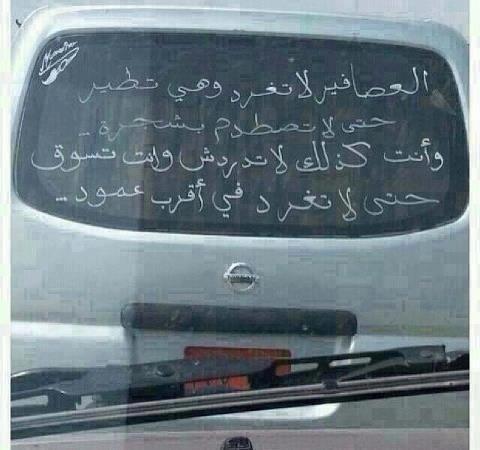 العصافير لا تغرد وهي تطير
حتى لا تصطدم بشجرة ..
وأنت كذلك لا تدردش وانت تسوق
حتى لا تغرد في أقرب عمود ...
NISSAN